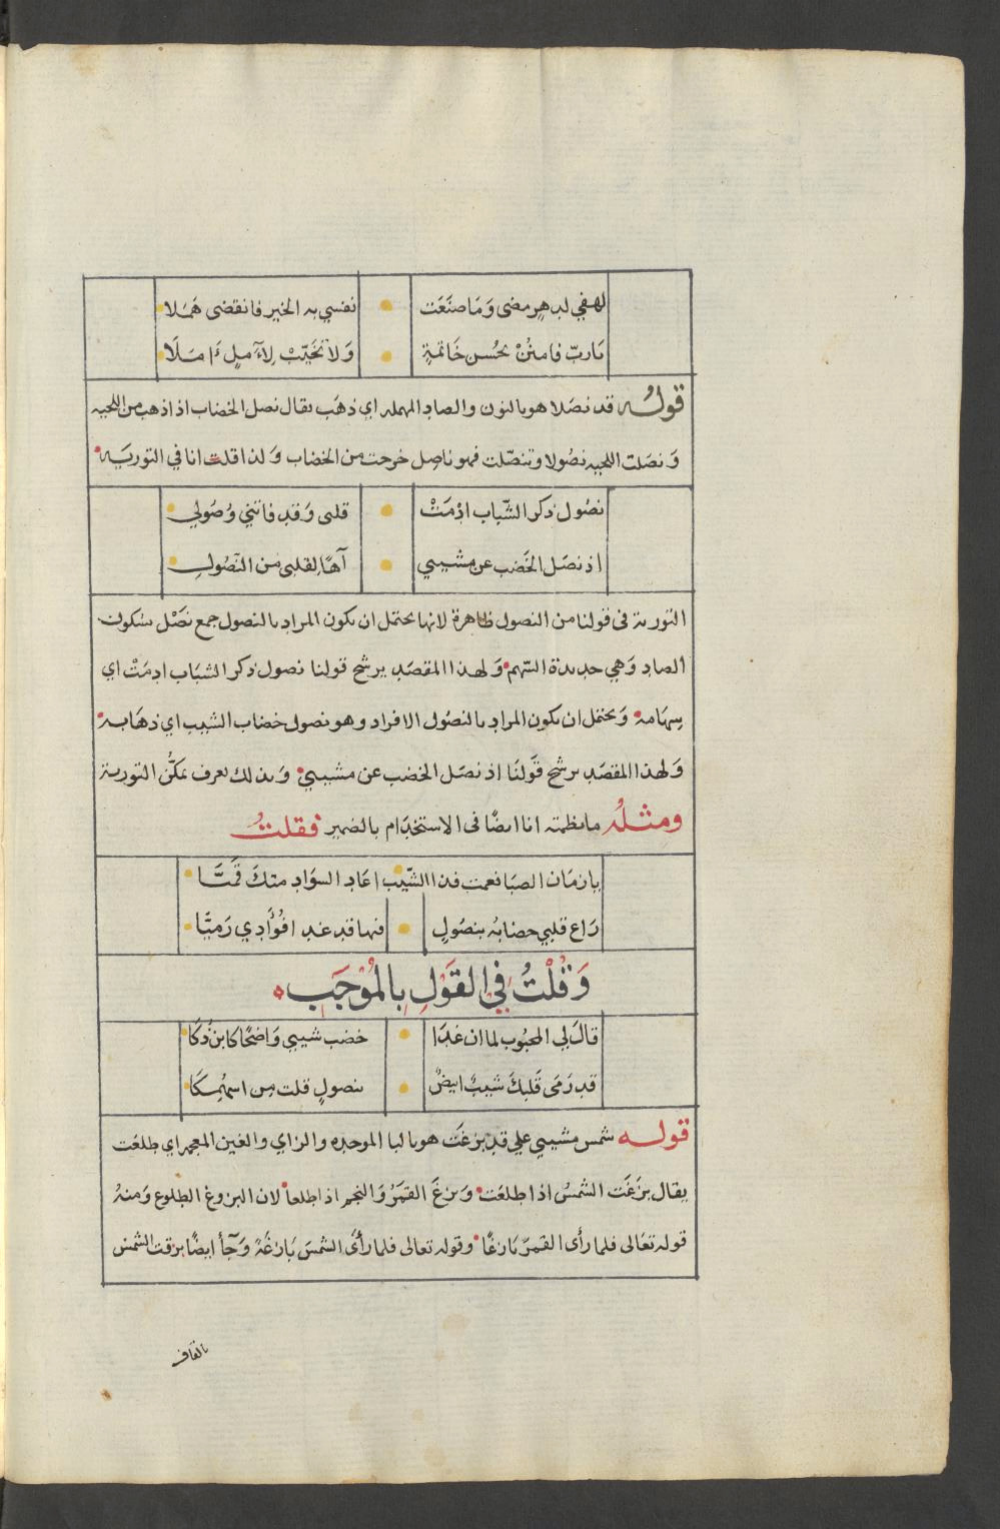 لهفي لدهر مضى وَمَا صنَعَت نفسي به الخير فانقضى هَمَلا
يَاربّ فامنُنْ بحُسن خَاتمةٍ وَلا تخَيّبْ لآمِلٍ أمَلَا
قوله قد نصَلا هو بالنون والصاد المهمله اي ذهَب يقال نصل الخضاب اذا ذهب من اللحيه
وَنصَلت اللحيه نصُولا وتنصّلت فهو ناصِل خرجت من الخضاب وَلذا قلت انا في التوريَه
نصُول ذكر الشّباب ادْمَتْ قلبى وَقد فاتني وصُولي
اذ نصَل الخَضب عن مشيبي آهًا لقلبى من النّصُولِ
التورية فى قولنا من النصول ظاهرة لانها يحتمل ان يكون المراد بالنصول جمع نَصْل بسكون
الصاد وَهي حديدة السّهم وَلهذا المقصَد يرشح قولنا نصول ذكر الشبَاب ادمَتْ اي
سِهَامهُ وَيحتمل ان يكون المراد بالنصُول الافراد وهو نصول خضاب الشيب اي ذهَابه
وَلهذا المقصَد يرشح قَولنَا اذ نصَل الخضب عن مشيبي وَبذلك يعرف تمكّن التورية
ومثلهُ ما نظمته انا ايضًا فى الاستخدَام بالضمير فقلتُ
يا زمَان الصبَا نعمت فذا الشّيب اعَاد السوَاد منكَ قَمتَّا
رَاع قلبي خضابهُ بنصُولٍ فبها قد غدا فُؤَادِي رَميَّا
وَقُلْتُ في القَوْلِ بِالمُوْجَبِ
قالَ لي المحبُوب لما ان غدَا خضب شيبي وَاضحًا كابن ذُكَا
قد رَمَى قَلبكَ شيبٌ ابيضٌ بنصولٍ قلت مِن اسهُمِكَا
قوله شمس مشيبي علي قد بزغَت هو بالبا الموحده والزاي والغين المعجمه اي طلعَت
يقال بزَغَت الشمسُ اذا طلعَت وَبزغَ القمَرُ وَالنجم اذا طلعا لان البزوغ الطلوع وَمنهُ
قوله تعَالى فلما رأى القمرَ بَازغًا وقوله تعالى فلما رأَى الشمسَ بَازغَةً وَجَأ ايضًا بزقت الشمس
بالقاف